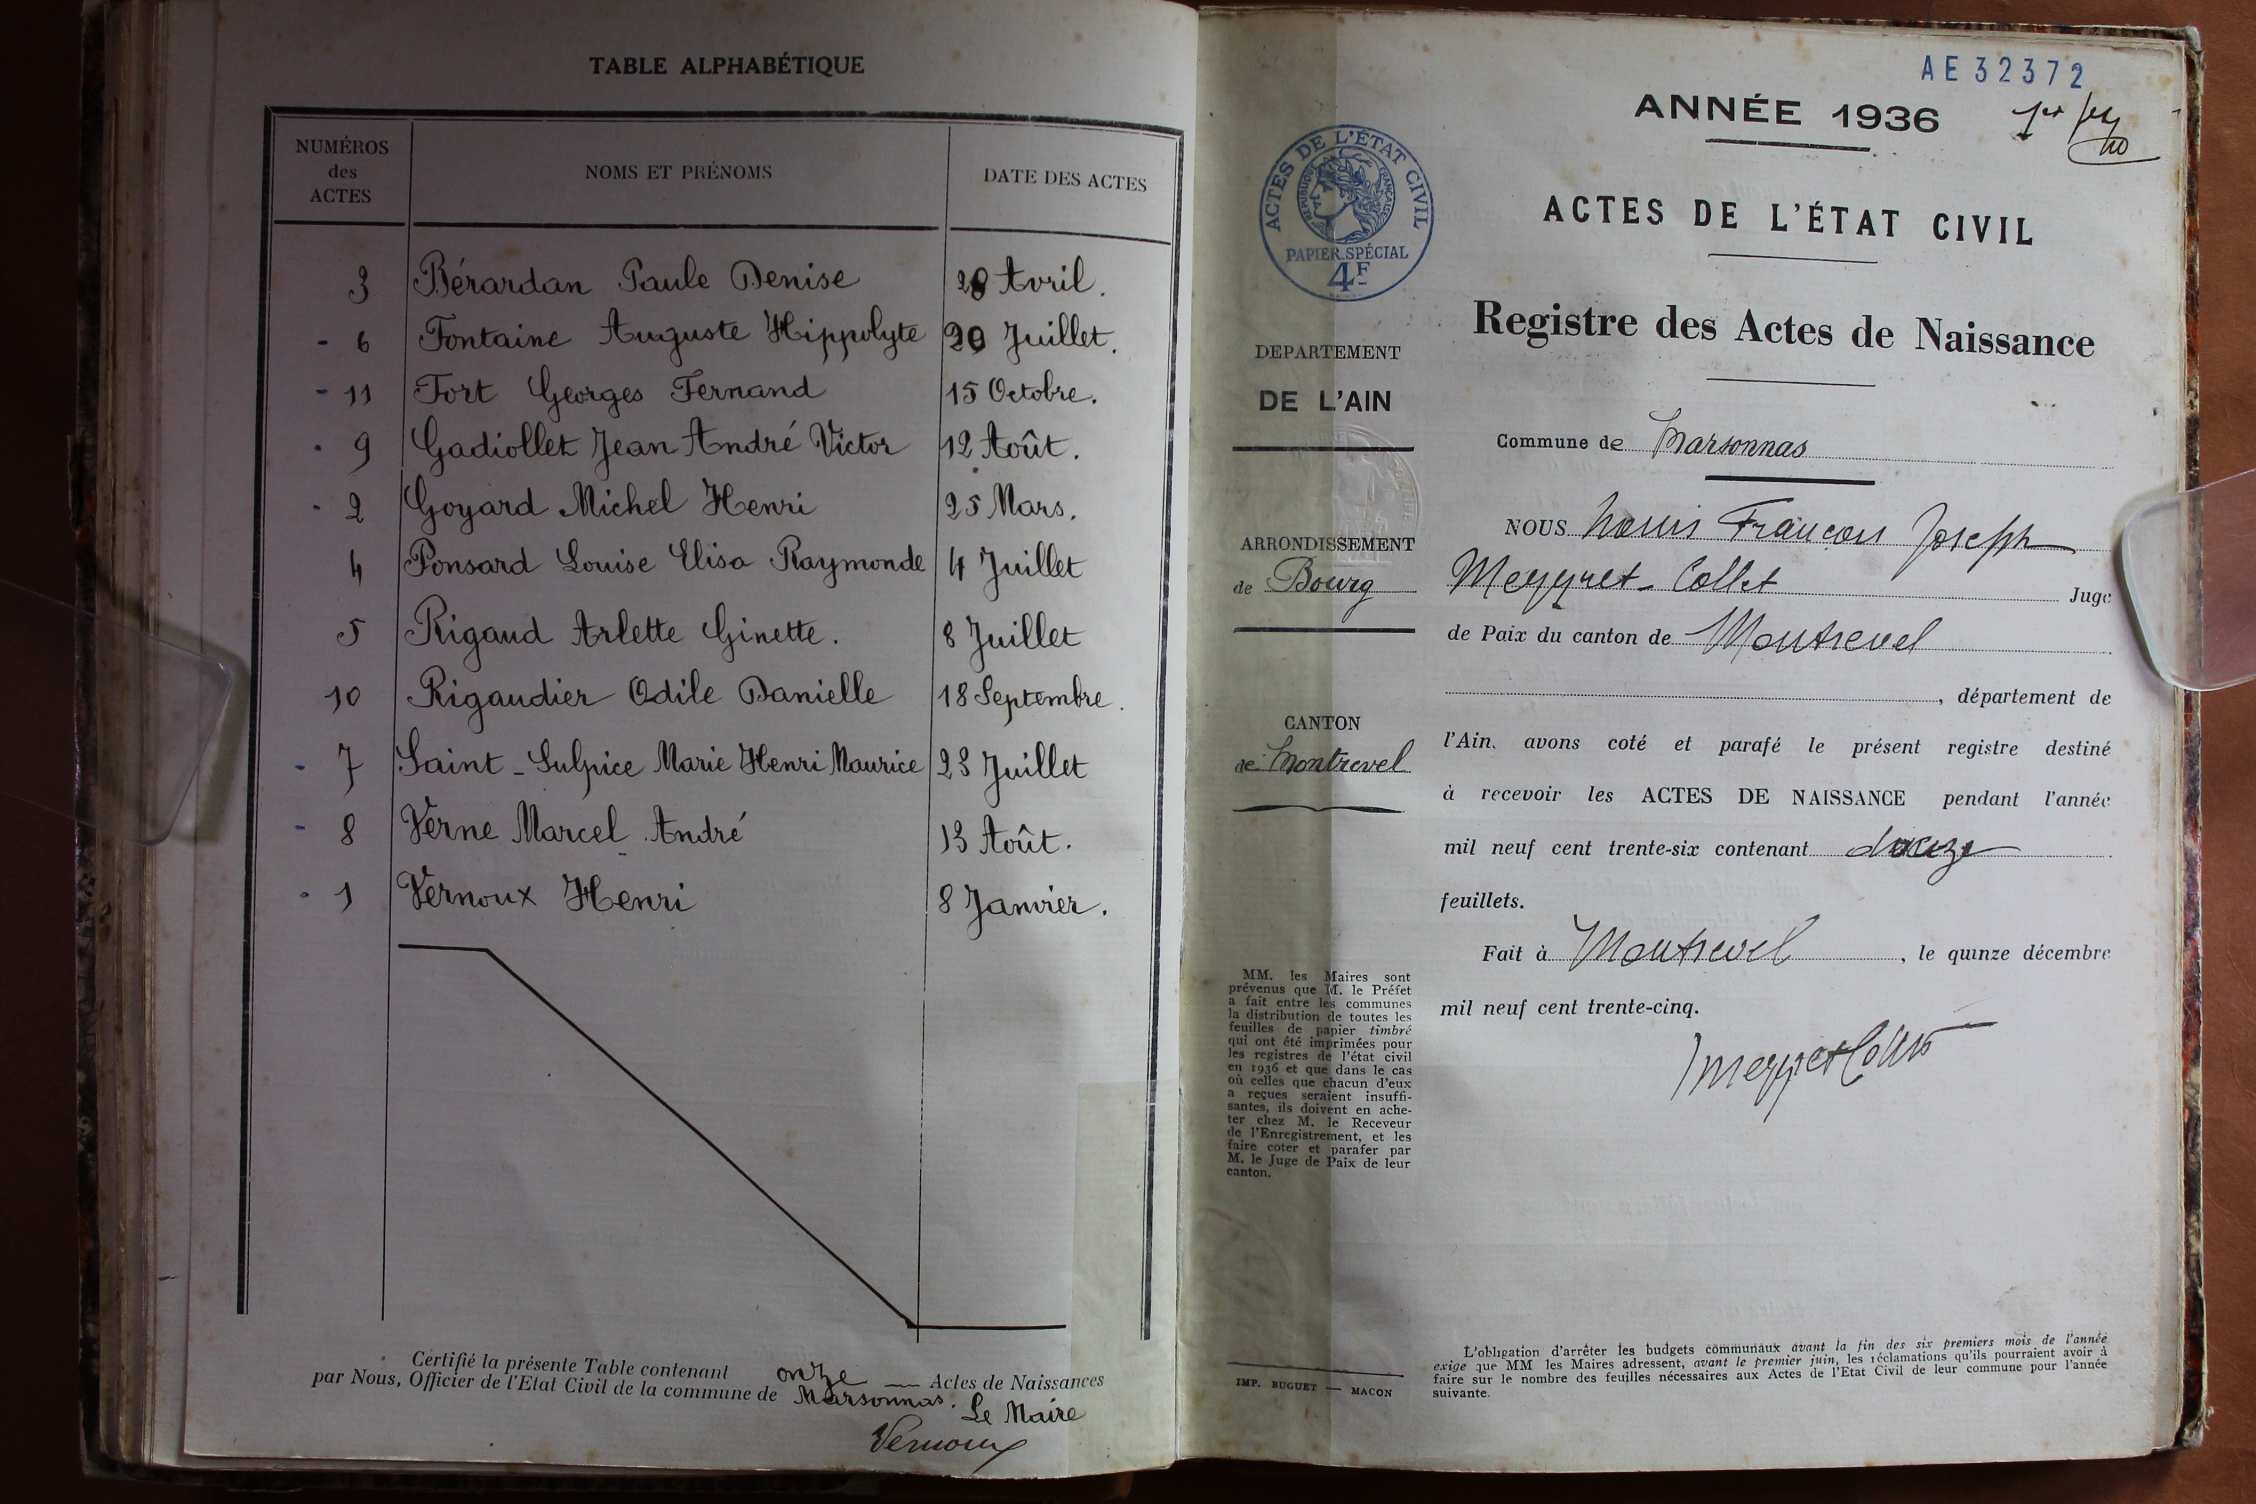 TABLE ALPHABÉTIQUE
NUMÉROS des ACTES NOMS ET PRÉNOMS DATE DES ACTES
3 Bérardan Paule Denise 28 Avril.
- 6 Fontaine Auguste Hippolyte 20 Juillet.
- 11 Fort Georges Fernand 15 Octobre.
- 9 Gadiollet Jean André Victor 12 Août.
- 2 Goyard Michel Henri 25 Mars.
4 Ponsard Louise Elisa Raymonde 4 Juillet
5 Rigaud Arlette Ginette. 8 Juillet
10 Rigaudier Odile Danielle 18 Septembre.
- 7 Saint-Sulpice Marie Henri Maurice 23 Juillet
- 8 Verne Marcel André 13 Août.
- 1 Vernoux Henri 8 Janvier.
Certifié la présente Table contenant onze — Actes de Naissances
par Nous, Officier de l'Etat Civil de la commune de Marsonnas.
Le Maire
Vernoux
AE32372
ANNÉE 1936
ACTES DE L'ÉTAT CIVIL
RÉPUBLIQUE FRANÇAISE
PAPIER SPÉCIAL
4F
DEPARTEMENT
DE L'AIN
ARRONDISSEMENT
de Bourg
CANTON
de Montrevel
MM. les Maires sont
prévenus que M. le Préfet
a fait entre les communes
la distribution de toutes les
feuilles de papier timbré
qui ont été imprimées pour
les registres de l'état civil
en 1936 et que dans le cas
où celles que chacun d'eux
a reçues seraient insuffi-
santes, ils doivent en ache-
ter chez M. le Receveur
de l'Enregistrement, et les
faire coter et parafer par
M. le Juge de Paix de leur
canton.
IMP. BUGUET — MACON
ACTES DE L'ÉTAT CIVIL
Registre des Actes de Naissance
Commune de Marsonnas
NOUS Louis François Joseph
Meyret-Collet Juge
de Paix du canton de Montrevel
, département de
l'Ain, avons coté et parafé le présent registre destiné
à recevoir les ACTES DE NAISSANCE pendant l'année
mil neuf cent trente-six contenant
feuillets.
Fait à Montrevel, le quinze décembre
mil neuf cent trente-cinq.
L'obligation d'arrêter les budgets communaux avant la fin des six premiers mois de l'année
exige que MM les Maires adressent, avant le premier juin, les réclamations qu'ils pourraient avoir à
faire sur le nombre des feuilles nécessaires aux Actes de l'Etat Civil de leur commune pour l'année
suivante.